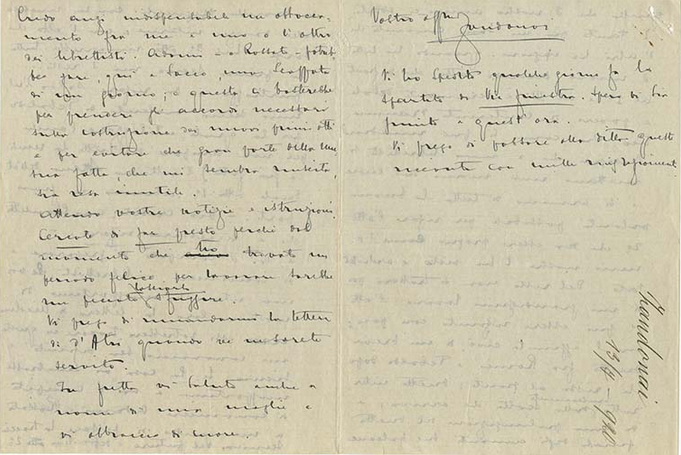 Credo anzi indispensabile un abbocca-
mento fra me e uno o l'altro
dei librettisti. Adami - o Rossato - potreb-
be fare, qui a Sacco, una scappata
di un giorno; e questo ci basterebbe
per prendere gli accordi necessari
sulla costruzione dei nuovi primi atti
e per evitare che gran parte della mu-
sica fatta, che mi sembra riuscita,
sia resa inutile.
Attendo vostre notizie e istruzioni.
Cercate di far presto perché dal
momento che ho trovato un
periodo felice per lavorare sarebbe
un peccato lasciarlo sfuggire.
Vi prego di rimandarmi la lettera
di D'Atri quando ve ne sarete
servito.
In fretta vi saluto anche a
nome di mia moglie e
vi abbraccio di cuore.
Vostro aff
Zandonai
Vi ho spedito qualche giorno fa lo
spartito di Via finestra. Spero vi sia
giunto a quest'ora.
Vi prego di passare alla ditta queste
ricevute con mille ringraziamenti.
Zandonai
13/9/920